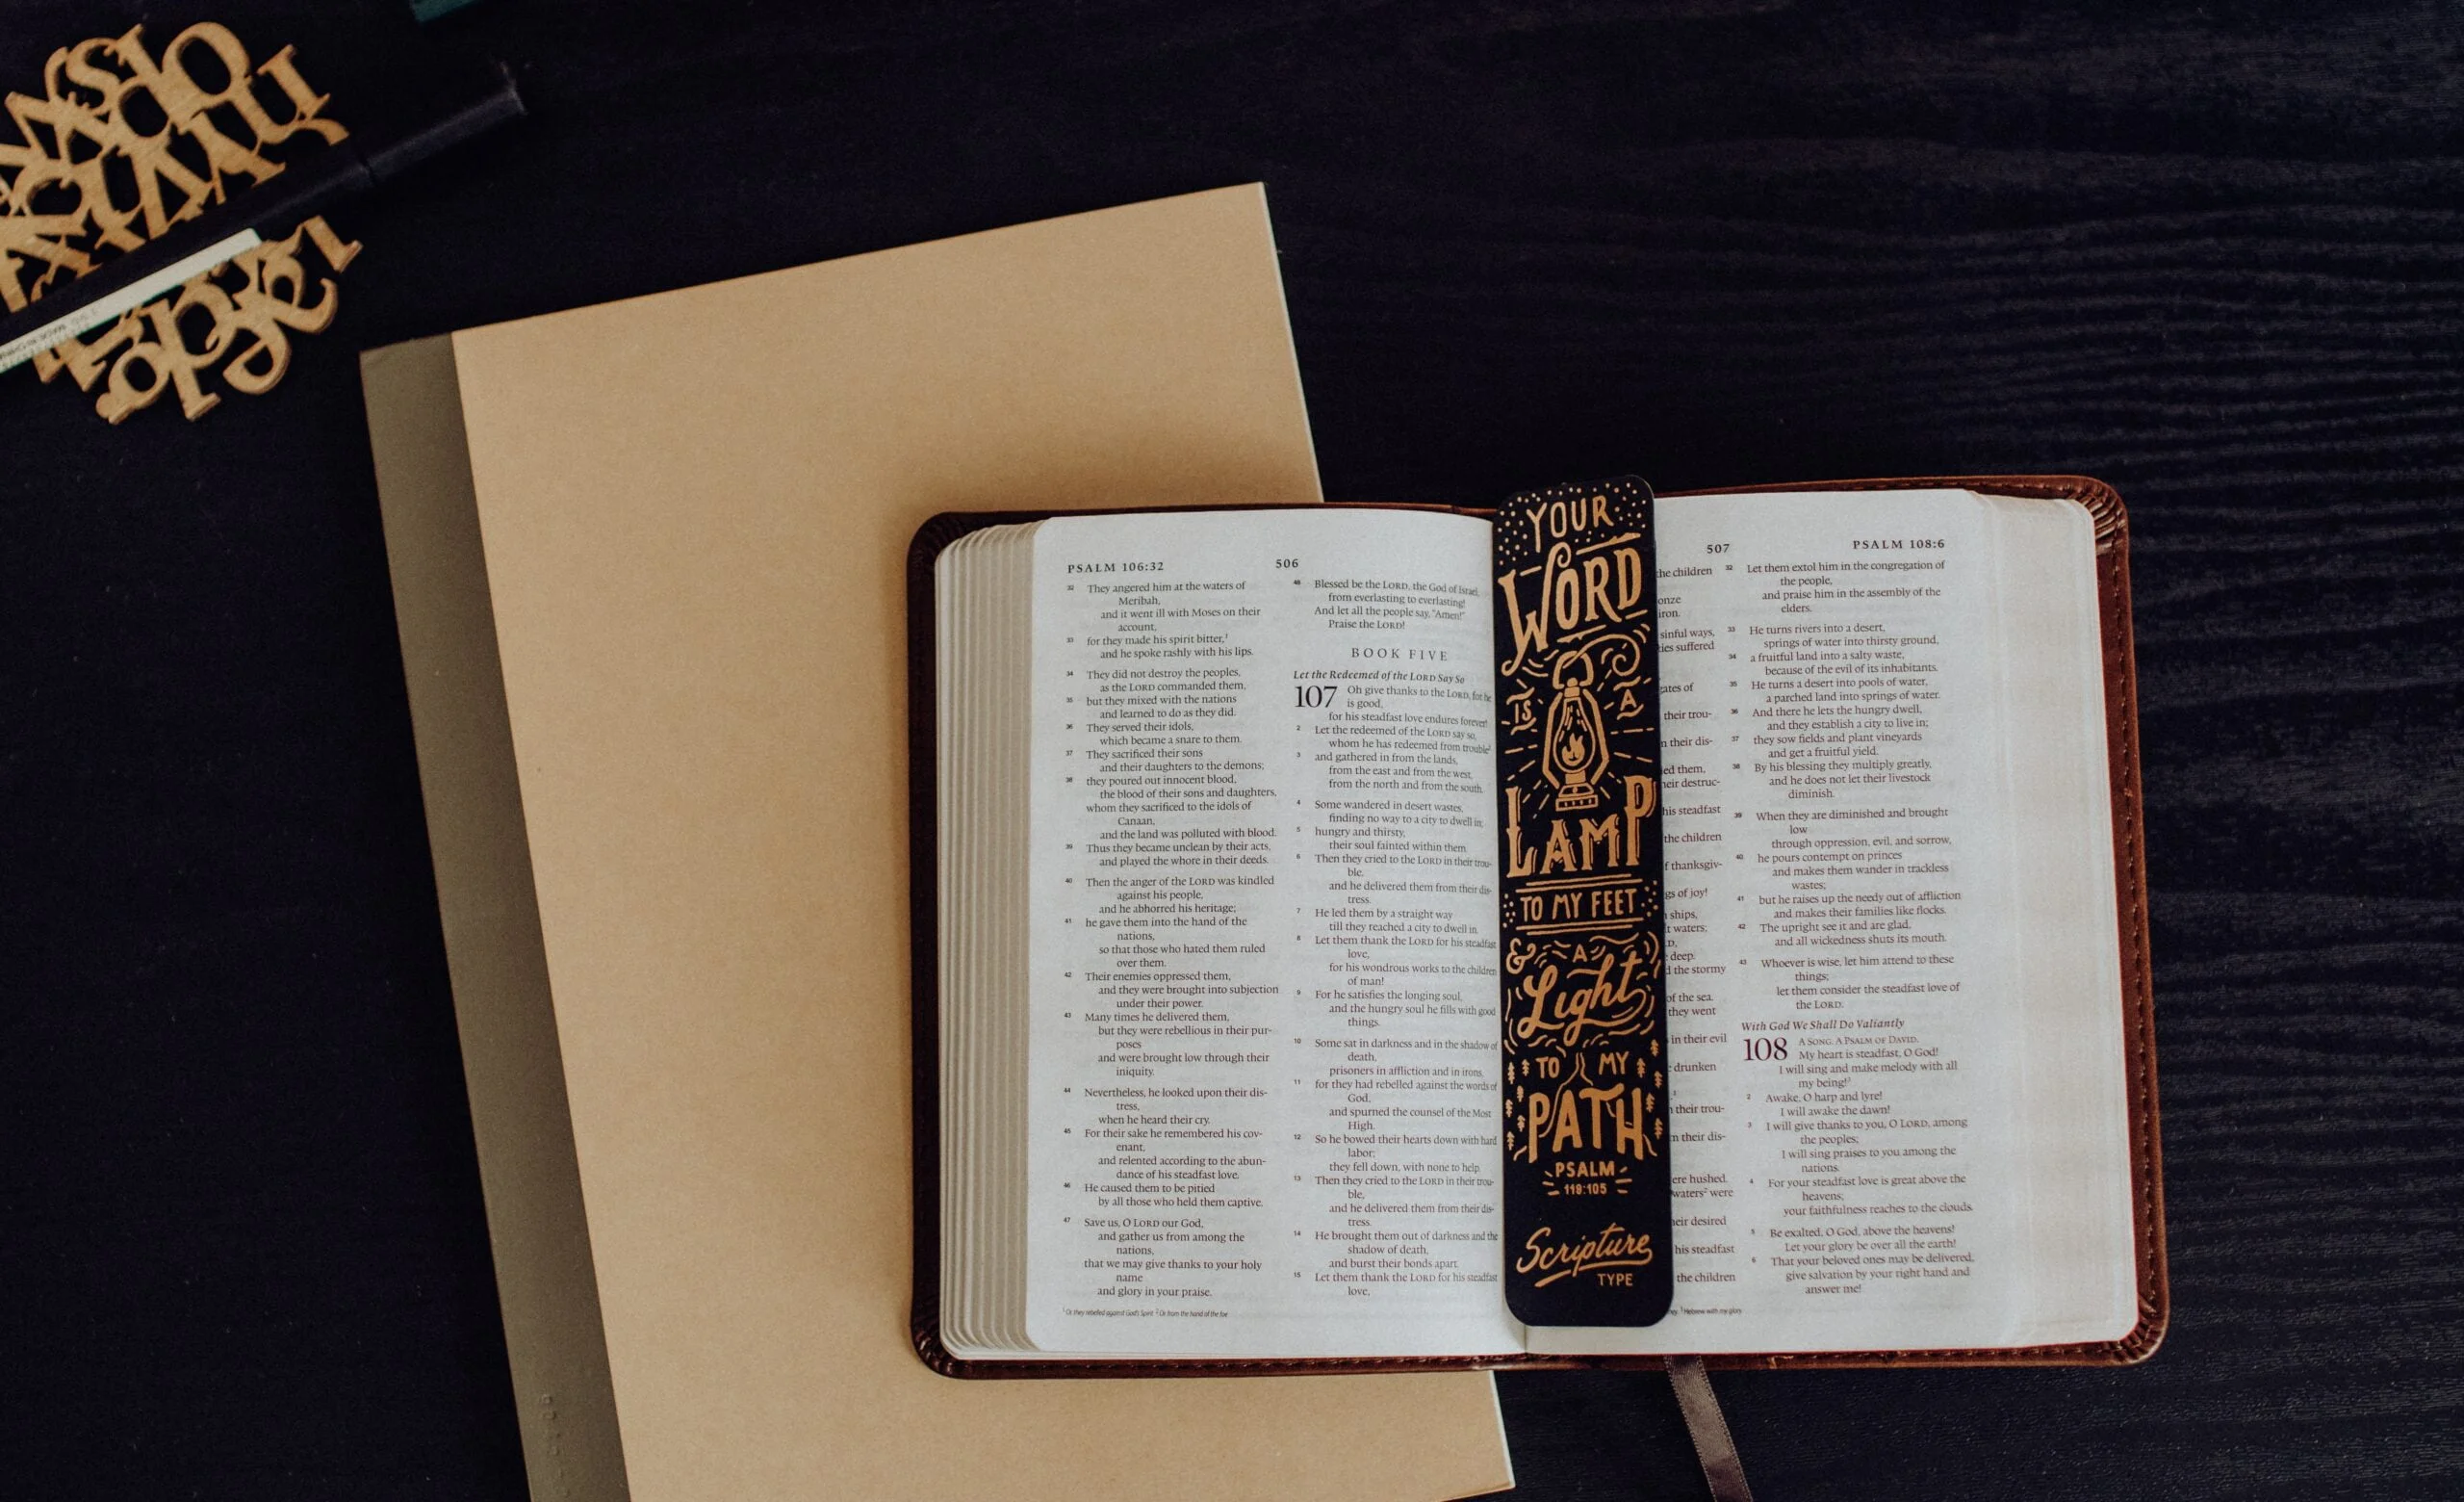 PSALM 106:32
506
32 They angered him at the waters of
Meribah,
and it went ill with Moses on their
account,
33 for they made his spirit bitter,1
and he spoke rashly with his lips.
34 They did not destroy the peoples,
as the LORD commanded them,
35 but they mixed with the nations
and learned to do as they did.
36 They served their idols,
which became a snare to them.
37 They sacrificed their sons
and their daughters to the demons;
38 they poured out innocent blood,
the blood of their sons and daughters,
whom they sacrificed to the idols of
Canaan,
and the land was polluted with blood.
39 Thus they became unclean by their acts,
and played the whore in their deeds.
40 Then the anger of the LORD was kindled
against his people,
and he abhorred his heritage;
41 he gave them into the hand of the
nations,
so that those who hated them ruled
over them.
42 Their enemies oppressed them,
and they were brought into subjection
under their power.
43 Many times he delivered them,
but they were rebellious in their pur-
poses
and were brought low through their
iniquity.
44 Nevertheless, he looked upon their dis-
tress,
when he heard their cry.
45 For their sake he remembered his cov-
enant,
and relented according to the abun-
dance of his steadfast love.
46 He caused them to be pitied
by all those who held them captive.
47 Save us, O LORD our God,
and gather us from among the
nations,
that we may give thanks to your holy
name
and glory in your praise.
48 Blessed be the LORD, the God of Israel,
from everlasting to everlasting!
And let all the people say, "Amen!"
Praise the LORD!
BOOK FIVE
Let the Redeemed of the LORD Say So
107 Oh give thanks to the LORD, for he
is good,
for his steadfast love endures forever!
2 Let the redeemed of the LORD say so,
whom he has redeemed from trouble2
3 and gathered in from the lands,
from the east and from the west,
from the north and from the south.
4 Some wandered in desert wastes,
finding no way to a city to dwell in;
5 hungry and thirsty,
their soul fainted within them.
6 Then they cried to the LORD in their trou-
ble,
and he delivered them from their dis-
tress.
7 He led them by a straight way
till they reached a city to dwell in.
8 Let them thank the LORD for his steadfast
love,
for his wondrous works to the children
of man!
9 For he satisfies the longing soul,
and the hungry soul he fills with good
things.
10 Some sat in darkness and in the shadow of
death,
prisoners in affliction and in irons,
11 for they had rebelled against the words of
God,
and spurned the counsel of the Most
High.
12 So he bowed their hearts down with hard
labor;
they fell down, with none to help.
13 Then they cried to the LORD in their trou-
ble,
and he delivered them from their dis-
tress.
14 He brought them out of darkness and the
shadow of death,
and burst their bonds apart.
15 Let them thank the LORD for his steadfast
love,
1 Or they rebelled against God's Spirit 2 Or from the hand of the foe
YOUR
WORD
IS A
LAMP
TO MY FEET
& A
Light
TO MY
PATH
PSALM
119:105
Scripture
TYPE
507
PSALM 108:6
the children
iron.
sinful ways,
suffered
of
their trou-
their dis-
them,
destruc-
his steadfast
the children
of joy!
ships,
waters;
deep.
the stormy
of the sea.
they went
in their evil
drunken
their trou-
their dis-
hushed.
waters2 were
desired
his steadfast
the children
32 Let them extol him in the congregation of
the people,
and praise him in the assembly of the
elders.
33 He turns rivers into a desert,
springs of water into thirsty ground,
34 a fruitful land into a salty waste,
because of the evil of its inhabitants.
35 He turns a desert into pools of water,
a parched land into springs of water.
36 And there he lets the hungry dwell,
and they establish a city to live in;
37 they sow fields and plant vineyards
and get a fruitful yield.
38 By his blessing they multiply greatly,
and he does not let their livestock
diminish.
39 When they are diminished and brought
low
through oppression, evil, and sorrow,
40 he pours contempt on princes
and makes them wander in trackless
wastes;
41 but he raises up the needy out of affliction
and makes their families like flocks.
42 The upright see it and are glad,
and all wickedness shuts its mouth.
43 Whoever is wise, let him attend to these
things;
let them consider the steadfast love of
the LORD.
With God We Shall Do Valiantly
108 A SONG. A PSALM OF DAVID.
My heart is steadfast, O God!
I will sing and make melody with all
my being!3
2 Awake, O harp and lyre!
I will awake the dawn!
3 I will give thanks to you, O LORD, among
the peoples;
I will sing praises to you among the
nations.
4 For your steadfast love is great above the
heavens;
your faithfulness reaches to the clouds.
5 Be exalted, O God, above the heavens!
Let your glory be over all the earth!
6 That your beloved ones may be delivered,
give salvation by your right hand and
answer me!
3 Hebrew with my glory